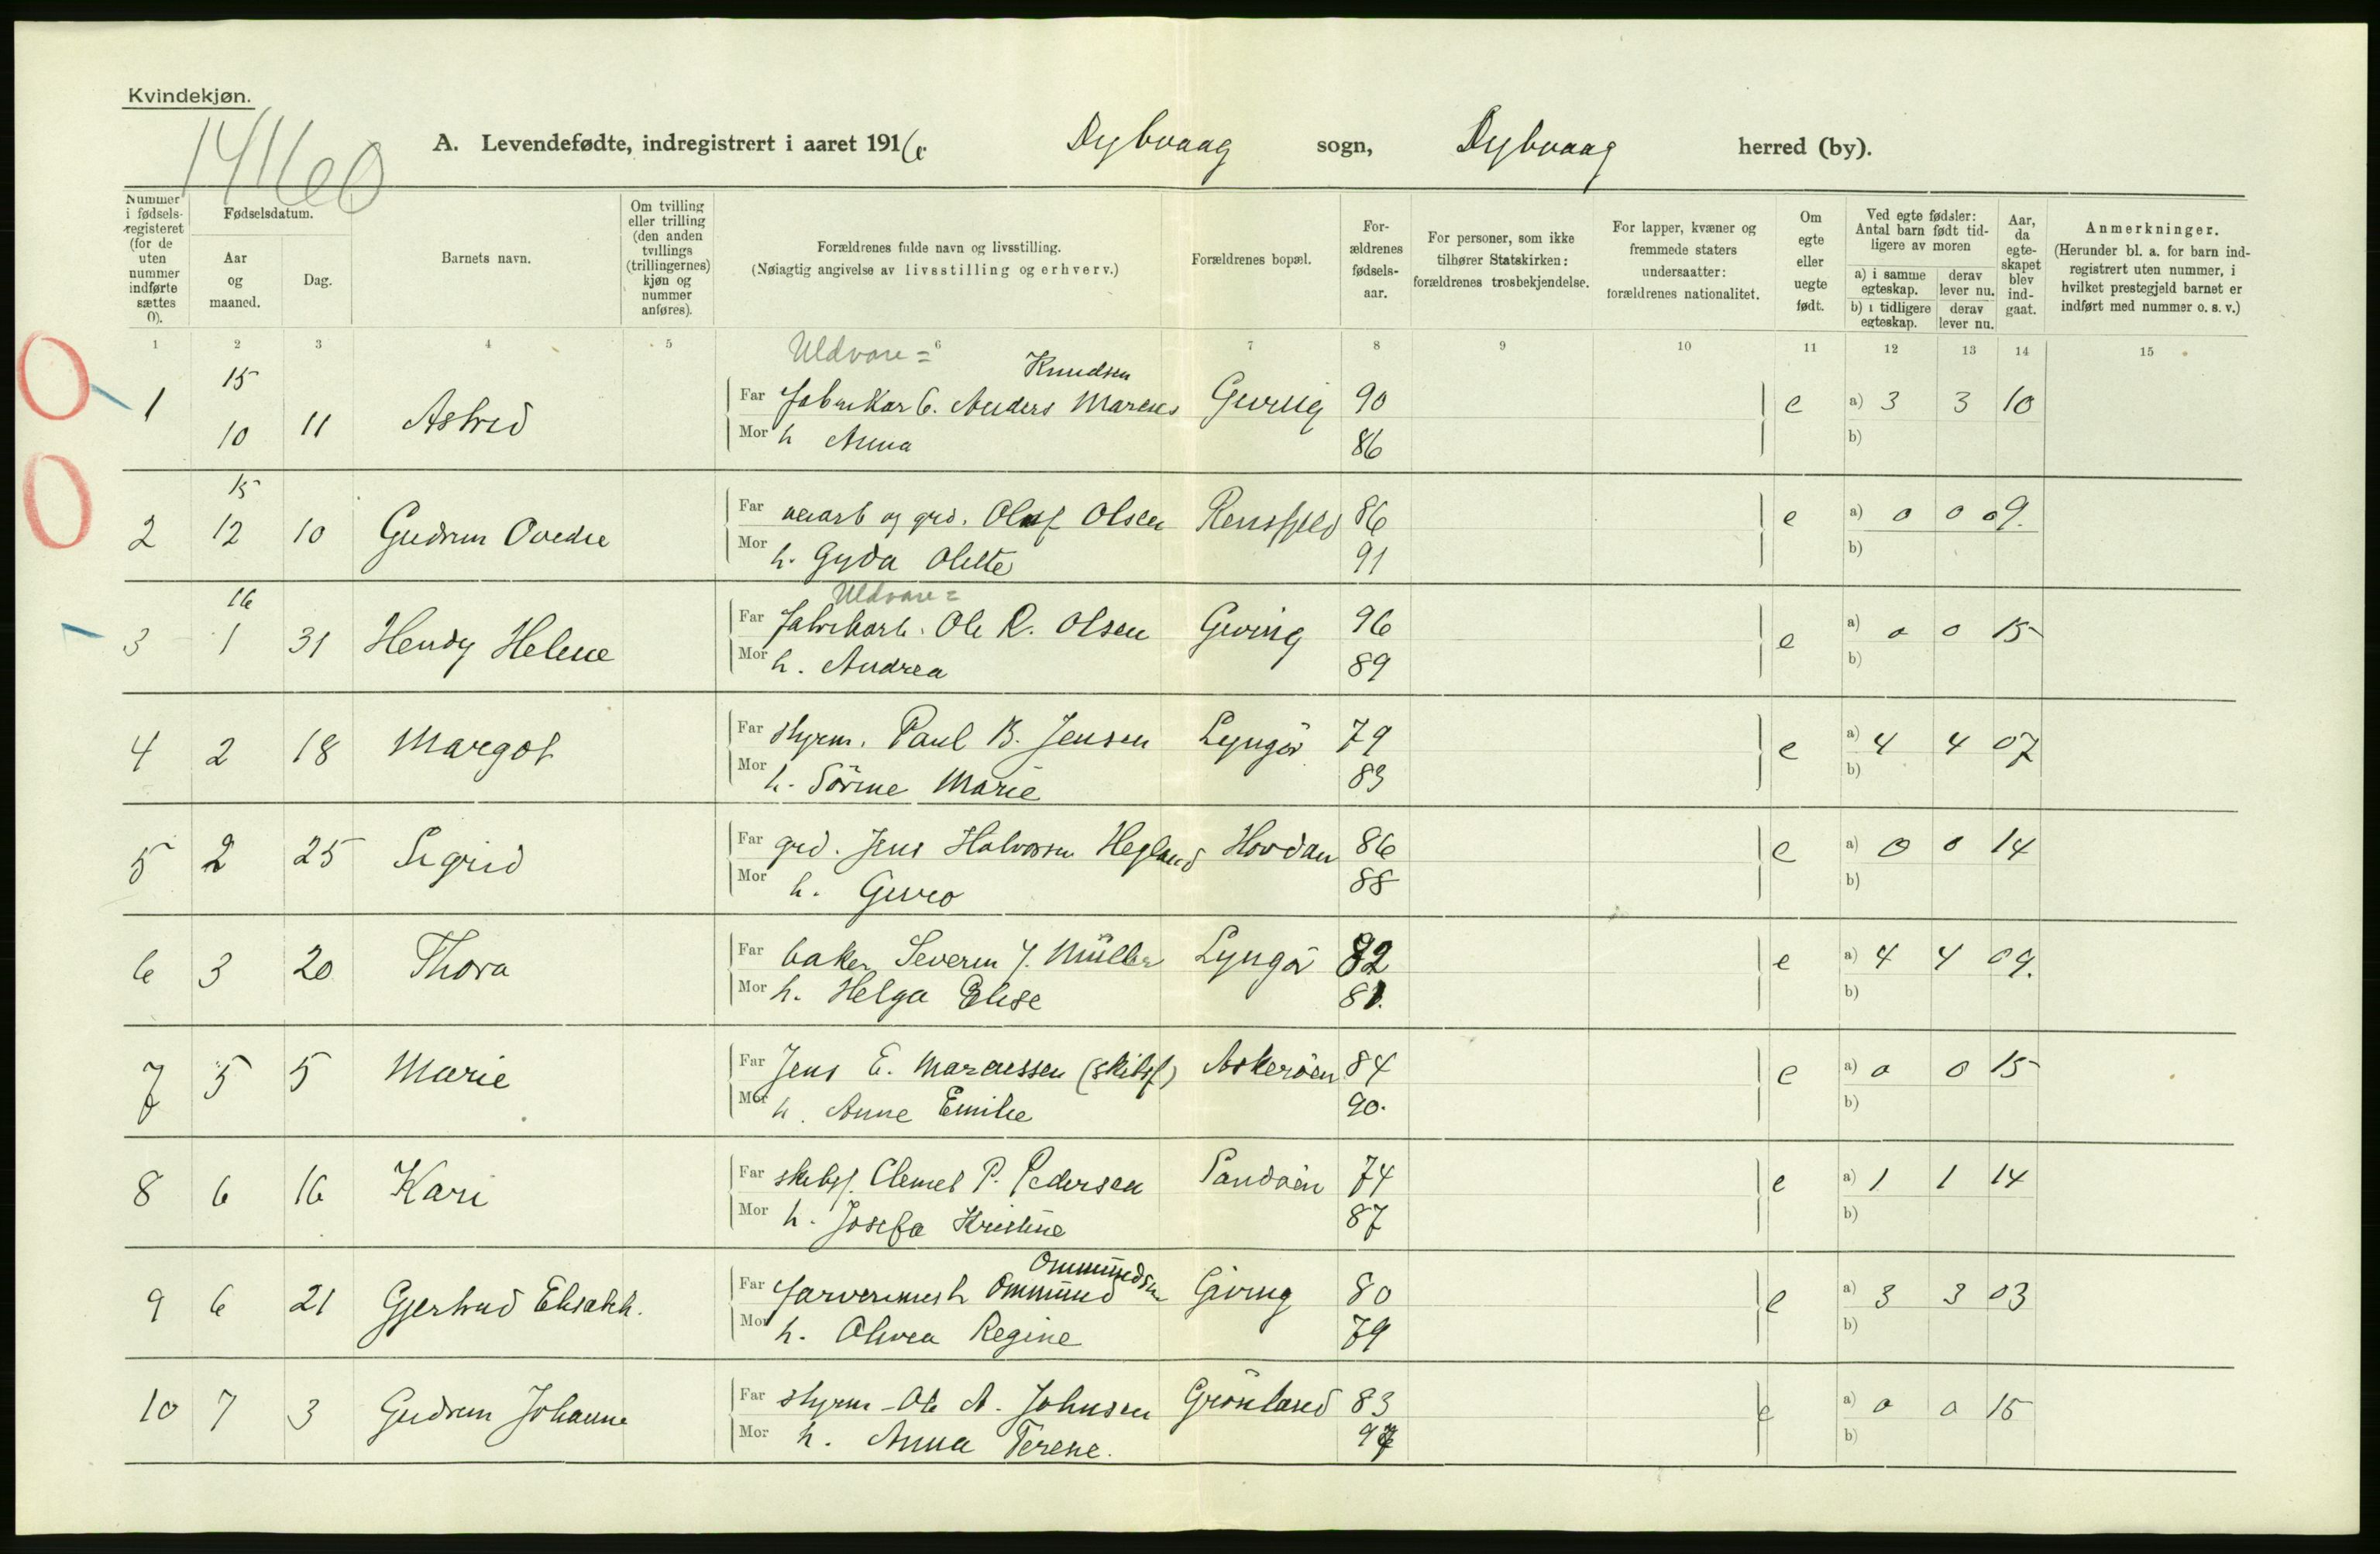 Kvindekjøn.
14160
A. Levendefødte, indregistrert i aaret 1916. Dybvaag sogn, Dybvaag herred (by).
Nummer i fødsels-registeret (for de uten nummer indførte sættes 0).
Fødselsdatum.
Aar og maaned.
Dag.
Barnets navn.
Om tvilling eller trilling (den anden tvillings (trillingernes) kjøn og nummer anføres).
Forældrenes fulde navn og livsstilling.
(Nøiagtig angivelse av livsstilling og erhverv.)
Forældrenes bopæl.
For-ældrenes fødsels-aar.
For personer, som ikke tilhører Statskirken: forældrenes trosbekjendelse.
For lapper, kvæner og fremmede staters undersaatter: forældrenes nationalitet.
Om egte eller uegte født.
Ved egte fødsler: Antal barn født tid-ligere av moren
a) i samme egteskap.
derav lever nu.
b) i tidligere egteskap.
derav lever nu.
Aar, da egte-skapet blev ind-gaat.
Anmerkninger.
(Herunder bl. a. for barn ind-registrert uten nummer, i hvilket prestegjeld barnet er indført med nummer o. s. v.)
1 2 3 4 5 6 7 8 9 10 11 12 13 14 15
Uldvare =
15 Knudsen
1 10 11 Astrid Far fabrikarb. Anders Marcus Geving 90 e a) 3 3 10
Mor h Anna 86 b)
15
2 12 10 Gudrun Ovedie Far og grd. Oluf Olsen Rensfjeld 86 e a) 0 0 09.
Mor h. Gyda Olette 91 b)
Uldvare =
16
3 1 31 Hendy Helene Far fabrikarb. Ole R. Olsen Geving 96 e a) 0 0 15
Mor h. Andrea 89 b)
4 2 18 Margot Far styrm. Paul B. Jensen Lyngör 79 e a) 4 4 07
Mor h. Sörine Marie 83 b)
5 2 25 Sigrid Far grd. Jens Halvorsen Hegland Hovdan 86 e a) 0 0 14
Mor h. Guro 88 b)
6 3 20 Thora Far baker Severin J. Müller Lyngör 82 e a) 4 4 09.
Mor h. Helga Elise 81. b)
7 5 5 Marie Far Jens E. Marcussen (skibsf) Askeröen 84 e a) 0 0 15
Mor h. Anne Emilie 90. b)
8 6 16 Kari Far skibsf. Clemet P. Pedersen Sandöen 74 e a) 1 1 14
Mor h. Josefa Kristine 87 b)
Ommundsen
9 6 21 Gjertrud Elisabth. Far farvermest Ommund Geving 80 e a) 3 3 03
Mor h. Olivea Regine 79 b)
10 7 3 Gudrun Johanne Far styrm. Ole A. Johnsen Grönland 83 e a) 0 0 15
Mor h. Anna Terese. b)